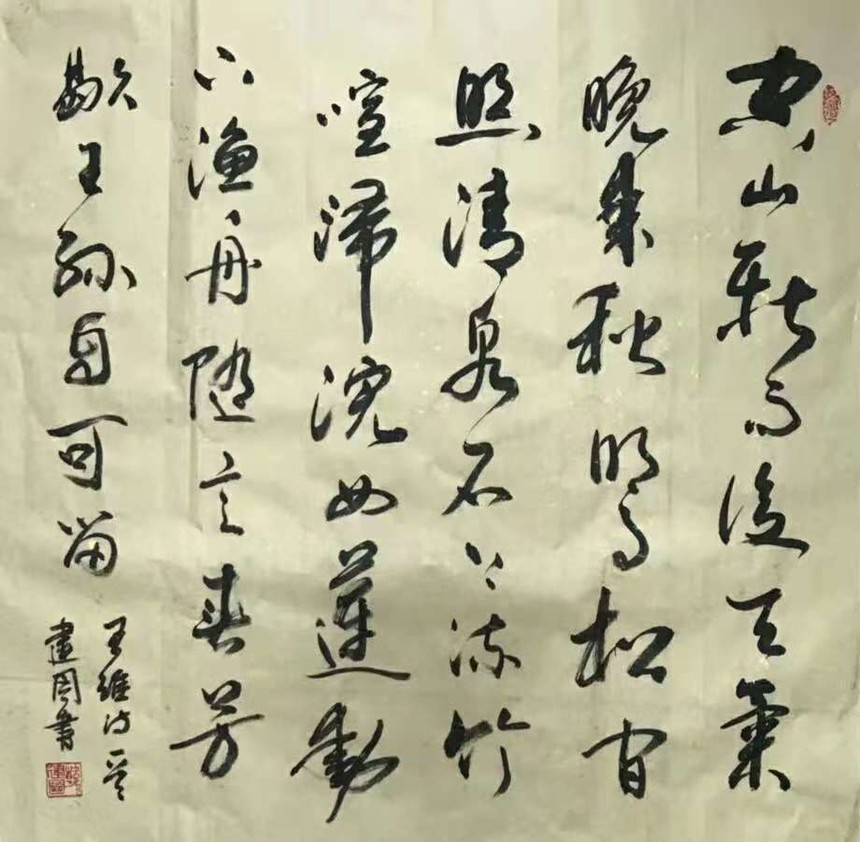 空山新雨後天氣
晚來秋明月松間
照清泉石上流竹
喧歸浣女蓮動
下漁舟隨意春芳
歇王孫自可留
王維詩一首
建周書